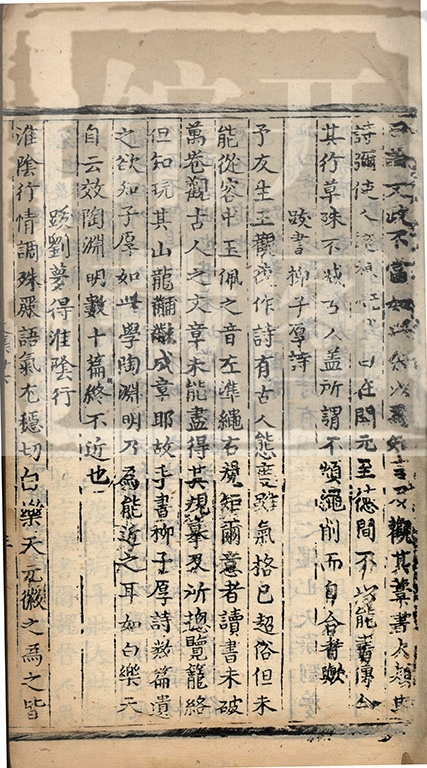 觀其藁書大類其
詩彌使人
在開元至德間不以能書傳今
其行草殊不減古人蓋所謂不煩繩削而自合者歟
跋書柳子厚詩
予友生王觀復作詩有古人態度雖氣格已超俗但未
能從容中玉佩之音左準繩右規矩爾意者讀書未破
萬卷觀古人之文章未能盡得其規摹及所總覽籠絡
但知玩其山龍黼黻成章耶故手書柳子厚詩數篇遺
之欲知子厚如此學陶淵明乃為能近之耳如白樂天
自云效陶淵明數十篇終不近也
跋劉夢得淮陰行
淮陰行情調殊麗語氣尤穩切白樂天元微之為之皆